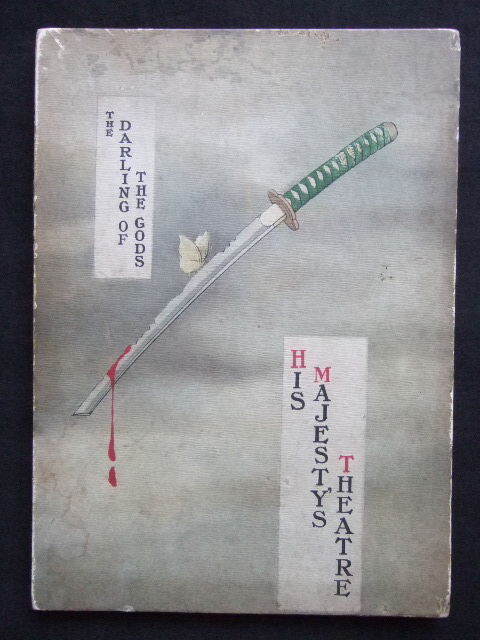 THE
DARLING OF
THE GODS
HIS
MAJESTY'S
THEATRE